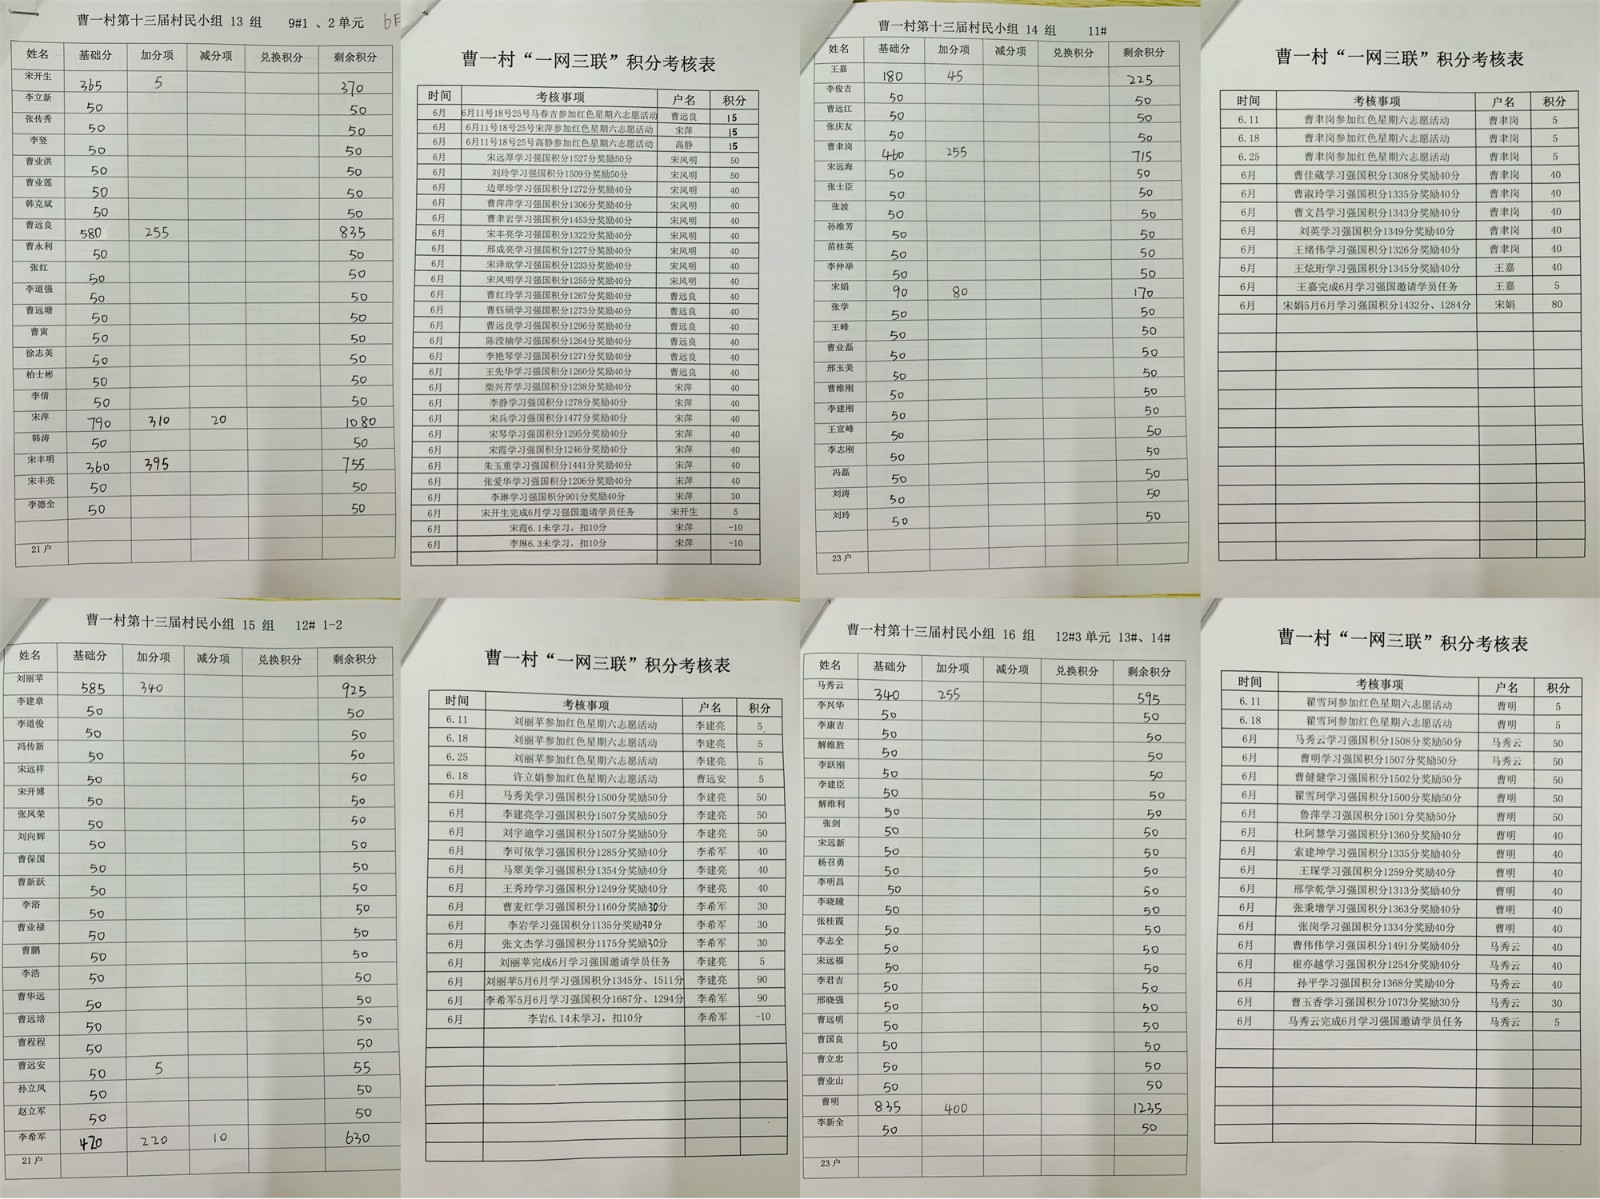 曹一村第十三届村民小组 13 组 9#1 、2单元 6月
姓名 基础分 加分项 减分项 兑换积分 剩余积分
宋开生 365 5 370
李立新 50 50
张传秀 50 50
李竖 50 50
曹业洪 50 50
曹业莲 50 50
韩克斌 50 50
曹远良 580 255 835
曹永利 50 50
张红 50 50
李道强 50 50
曹远塘 50 50
曹寅 50 50
徐志英 50 50
柏士彬 50 50
李倩 50 50
宋萍 790 310 20 1080
韩涛 50 50
宋丰明 360 395 755
宋丰亮 50 50
李德全 50 50
21户
曹一村“一网三联”积分考核表
时间 考核事项 户名 积分
6月 6月11号18号25号马春吉参加红色星期六志愿活动 曹远良 15
6月 6月11号18号25号宋萍参加红色星期六志愿活动 宋萍 15
6月 6月11号18号25号高静参加红色星期六志愿活动 高静 15
6月 宋远厚学习强国积分1527分奖励50分 宋风明 50
6月 刘玲学习强国积分1509分奖励50分 宋风明 50
6月 边翠珍学习强国积分1272分奖励40分 宋风明 40
6月 曹萍萍学习强国积分1306分奖励40分 宋风明 40
6月 曹聿岩学习强国积分1453分奖励40分 宋风明 40
6月 宋丰亮学习强国积分1322分奖励40分 宋风明 40
6月 邢成亮学习强国积分1277分奖励40分 宋风明 40
6月 宋泽欣学习强国积分1233分奖励40分 宋风明 40
6月 宋风明学习强国积分1255分奖励40分 宋风明 40
6月 曹红玲学习强国积分1267分奖励40分 曹远良 40
6月 曹钰硕学习强国积分1273分奖励40分 曹远良 40
6月 曹远良学习强国积分1296分奖励40分 曹远良 40
6月 陈滢楠学习强国积分1264分奖励40分 曹远良 40
6月 李艳琴学习强国积分1271分奖励40分 曹远良 40
6月 王先华学习强国积分1260分奖励40分 曹远良 40
6月 柴兴芹学习强国积分1238分奖励40分 宋萍 40
6月 李静学习强国积分1278分奖励40分 宋萍 40
6月 宋兵学习强国积分1477分奖励40分 宋萍 40
6月 宋琴学习强国积分1295分奖励40分 宋萍 40
6月 宋霞学习强国积分1246分奖励40分 宋萍 40
6月 朱玉重学习强国积分1441分奖励40分 宋萍 40
6月 张爱华学习强国积分1206分奖励40分 宋萍 40
6月 李琳学习强国积分901分奖励40分 宋萍 30
6月 宋开生完成6月学习强国邀请学员任务 宋开生 5
6月 宋霞6.1未学习，扣10分 宋萍 -10
6月 李琳6.3未学习，扣10分 宋萍 -10
曹一村第十三届村民小组 14 组 11#
姓名 基础分 加分项 减分项 兑换积分 剩余积分
王嘉 180 45 225
李俊吉 50 50
曹远江 50 50
张庆友 50 50
曹聿岗 460 255 715
宋远海 50 50
张士臣 50 50
张波 50 50
孙维芳 50 50
苗桂英 50 50
李仲举 50 50
宋娟 90 80 170
张学 50 50
王峰 50 50
曹业磊 50 50
邢玉美 50 50
曹维刚 50 50
李建刚 50 50
王宣峰 50 50
李志刚 50 50
冯磊 50 50
刘涛 50 50
刘玲 50 50
23户
曹一村“一网三联”积分考核表
时间 考核事项 户名 积分
6.11 曹聿岗参加红色星期六志愿活动 曹聿岗 5
6.18 曹聿岗参加红色星期六志愿活动 曹聿岗 5
6.25 曹聿岗参加红色星期六志愿活动 曹聿岗 5
6月 曹佳葳学习强国积分1308分奖励40分 曹聿岗 40
6月 曹淑玲学习强国积分1335分奖励40分 曹聿岗 40
6月 曹文昌学习强国积分1343分奖励40分 曹聿岗 40
6月 刘英学习强国积分1349分奖励40分 曹聿岗 40
6月 王绪伟学习强国积分1326分奖励40分 曹聿岗 40
6月 王炫珩学习强国积分1345分奖励40分 王嘉 40
6月 王嘉完成6月学习强国邀请学员任务 王嘉 5
6月 宋娟5月6月学习强国积分1432分、1284分 宋娟 80
曹一村第十三届村民小组 15 组 12# 1-2
姓名 基础分 加分项 减分项 兑换积分 剩余积分
刘丽苹 585 340 925
李建章 50 50
李道俊 50 50
冯传新 50 50
宋远祥 50 50
宋开博 50 50
张凤荣 50 50
刘向辉 50 50
曹保国 50 50
曹新跃 50 50
李浴 50 50
曹业禄 50 50
曹鹏 50 50
李浩 50 50
曹华远 50 50
曹远培 50 50
曹程程 50 50
曹远安 50 5 55
孙立凤 50 50
赵立军 50 50
李希军 420 220 10 630
21户
曹一村“一网三联”积分考核表
时间 考核事项 户名 积分
6.11 刘丽苹参加红色星期六志愿活动 李建亮 5
6.18 刘丽苹参加红色星期六志愿活动 李建亮 5
6.25 刘丽苹参加红色星期六志愿活动 李建亮 5
6.18 许立娟参加红色星期六志愿活动 曹远安 5
6月 马秀美学习强国积分1500分奖励50分 李建亮 50
6月 李建亮学习强国积分1507分奖励50分 李建亮 50
6月 刘宇迪学习强国积分1507分奖励50分 李建亮 50
6月 李可依学习强国积分1285分奖励40分 李希军 40
6月 马翠美学习强国积分1354分奖励40分 李建亮 40
6月 王秀玲学习强国积分1249分奖励40分 李建亮 40
6月 曹麦红学习强国积分1160分奖励30分 李希军 30
6月 李岩学习强国积分1135分奖励30分 李希军 30
6月 张文杰学习强国积分1175分奖励30分 李希军 30
6月 刘丽苹完成6月学习强国邀请学员任务 李建亮 5
6月 刘丽苹5月6月学习强国积分1345分、1511分 李建亮 90
6月 李希军5月6月学习强国积分1687分、1294分 李希军 90
6月 李岩6.14未学习，扣10分 李希军 -10
曹一村第十三届村民小组 16 组 12#3单元 13#、14#
姓名 基础分 加分项 减分项 兑换积分 剩余积分
马秀云 340 255 595
李兴华 50 50
李康吉 50 50
解维胜 50 50
李跃刚 50 50
李建臣 50 50
解维利 50 50
张剑 50 50
宋远新 50 50
杨召勇 50 50
李明昌 50 50
李晓瞳 50 50
张桂霞 50 50
李志全 50 50
宋远福 50 50
李君吉 50 50
邢晓强 50 50
曹远明 50 50
曹国良 50 50
曹立忠 50 50
曹业山 50 50
曹明 835 400 1235
李新全 50 50
23户
曹一村“一网三联”积分考核表
时间 考核事项 户名 积分
6.11 翟雪珂参加红色星期六志愿活动 曹明 5
6.18 翟雪珂参加红色星期六志愿活动 曹明 5
6月 马秀云学习强国积分1508分奖励50分 马秀云 50
6月 曹明学习强国积分1507分奖励50分 马秀云 50
6月 曹健健学习强国积分1502分奖励50分 曹明 50
6月 翟雪珂学习强国积分1500分奖励50分 曹明 50
6月 鲁萍学习强国积分1501分奖励50分 曹明 50
6月 杜阿慧学习强国积分1360分奖励40分 曹明 40
6月 索建坤学习强国积分1335分奖励40分 曹明 40
6月 王琛学习强国积分1259分奖励40分 曹明 40
6月 邢学乾学习强国积分1313分奖励40分 曹明 40
6月 张秉增学习强国积分1363分奖励40分 曹明 40
6月 张岗学习强国积分1334分奖励40分 曹明 40
6月 曹伟伟学习强国积分1491分奖励40分 马秀云 40
6月 崔亦越学习强国积分1254分奖励40分 马秀云 40
6月 孙平学习强国积分1368分奖励40分 马秀云 40
6月 曹玉香学习强国积分1073分奖励30分 马秀云 30
6月 马秀云完成6月学习强国邀请学员任务 马秀云 5